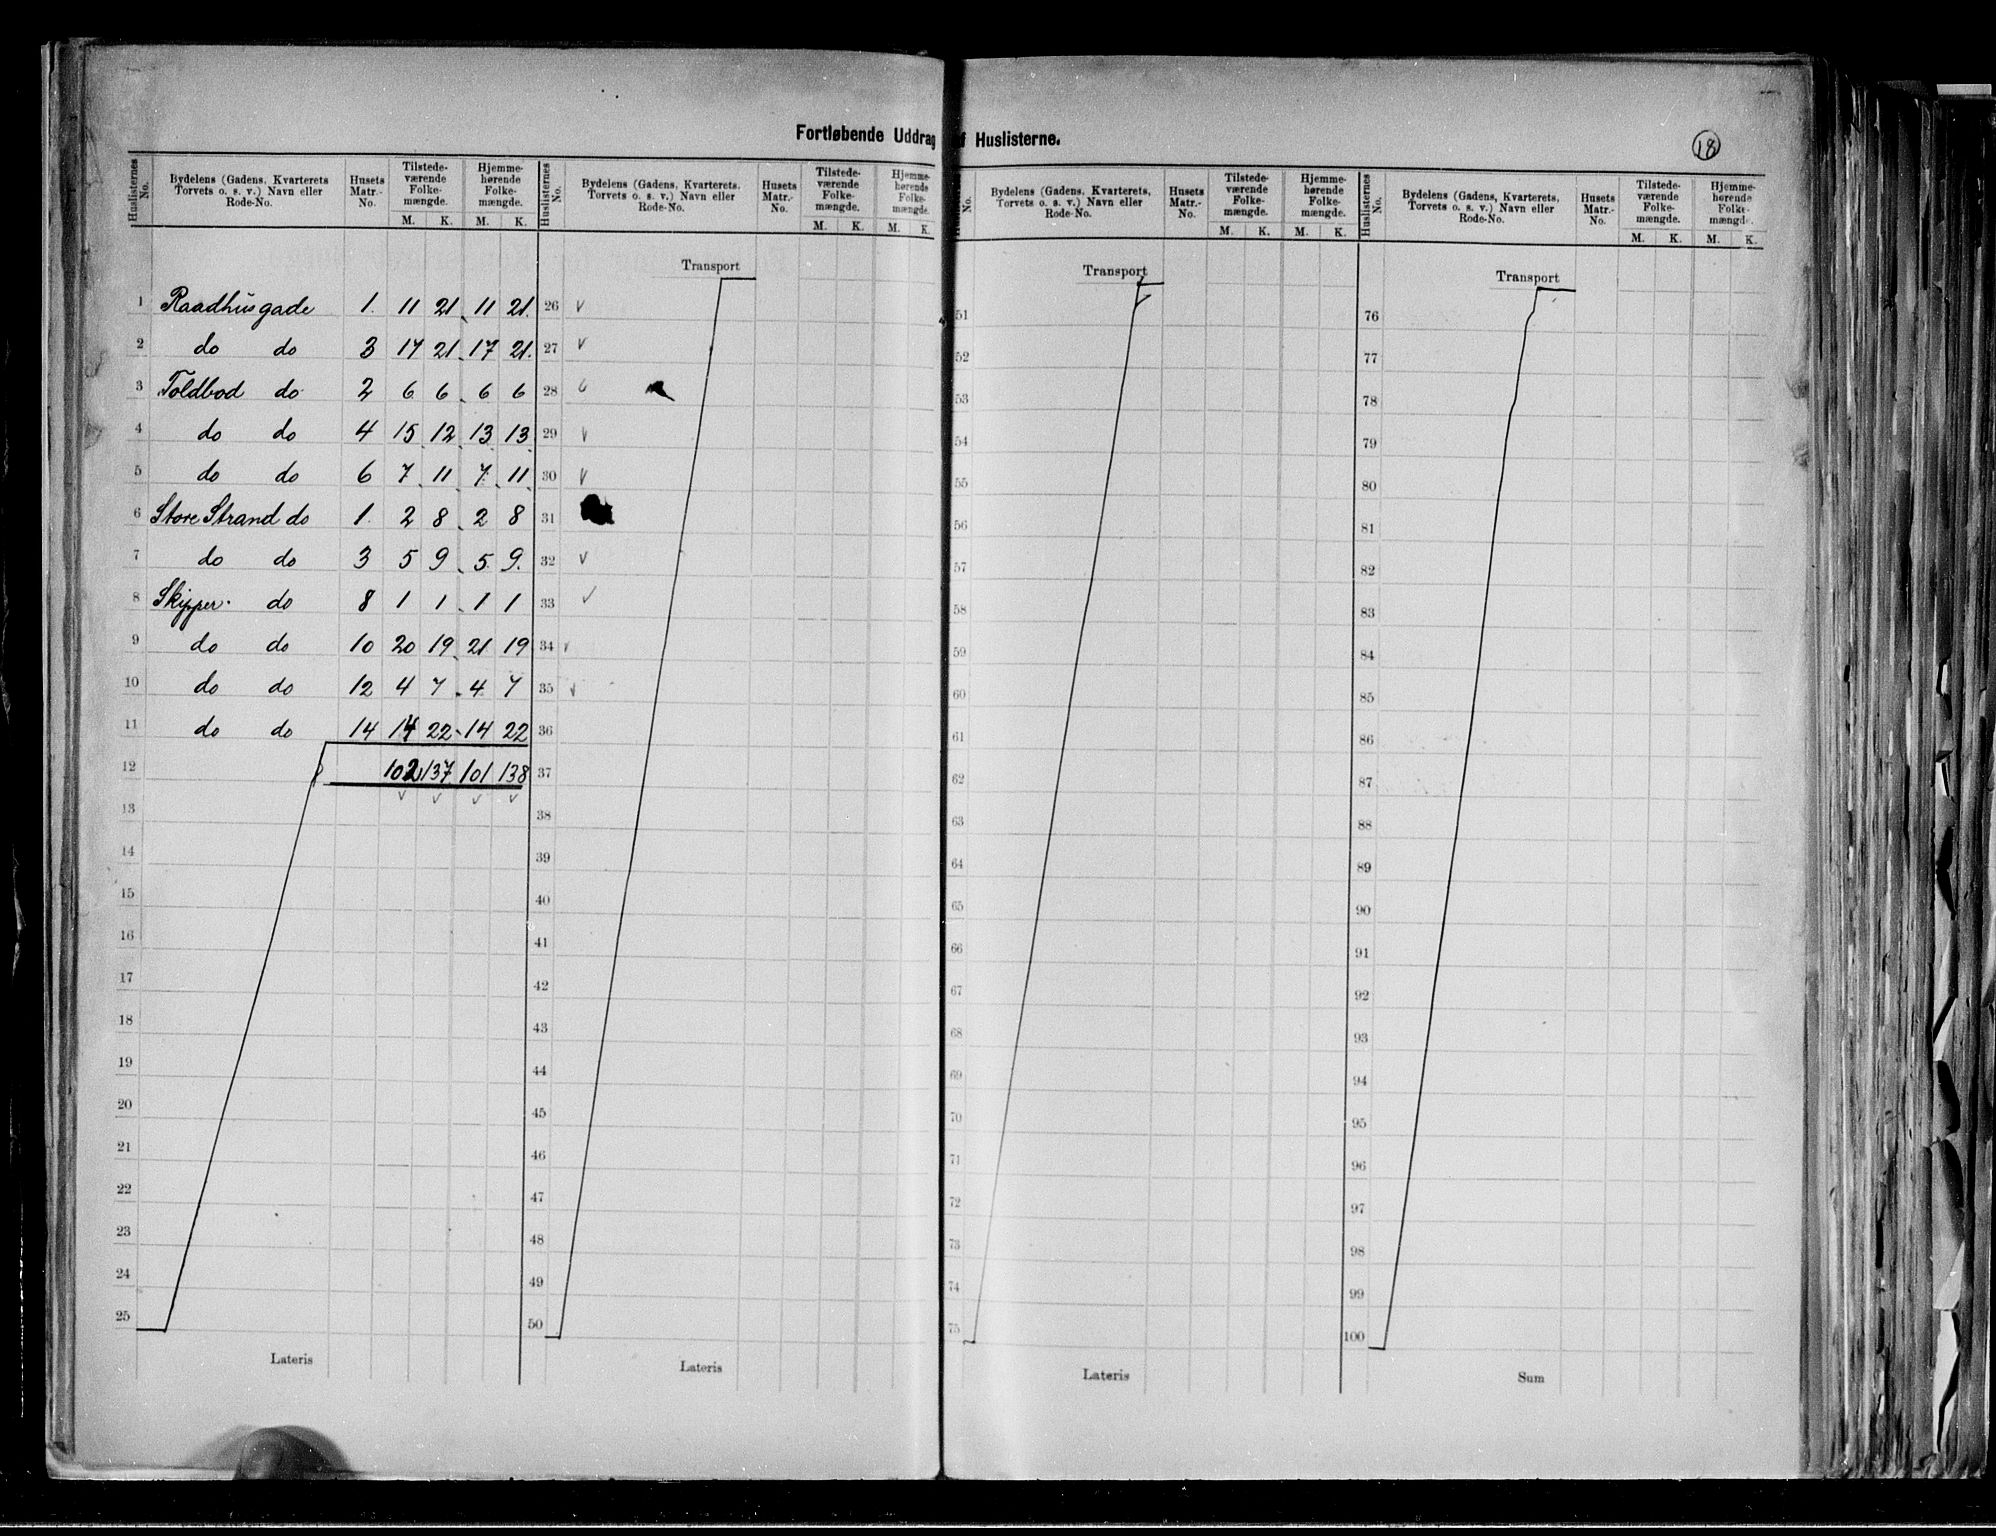 Fortløbende Uddrag af Huslisterne.
18
Huslisternes No. | Bydelens (Gadens, Kvarterets Torvets o. s. v.) Navn eller Rode-No. | Husets Matr.-No. | Tilstede-værende Folke-mængde. M. K. | Hjemme-hørende Folke-mængde. M. K.
Huslisternes No. | Bydelens (Gadens, Kvarterets, Torvets o. s. v.) Navn eller Rode-No. | Husets Matr.-No. | Tilstede-værende Folke-mængde. M. K. | Hjemme-hørende Folke-mængde. M. K.
No. | Bydelens (Gadens, Kvarterets, Torvets o. s. v.) Navn eller Rode-No. | Husets Matr.-No. | Tilstede-værende Folke-mængde. M. K. | Hjemme-hørende Folke-mængde. M. K.
Huslisternes No. | Bydelens (Gadens, Kvarterets, Torvets o. s. v.) Navn eller Rode-No. | Husets Matr.-No. | Tilstede-værende Folke-mængde. M. K. | Hjemme-hørende Folke-mængde. M. K.
Transport Transport Transport
1 Raadhusgade 1. 11 21. 11 21. 26 51 76
2 do do 3 17 21. 17 21. 27 52 77
3 Toldbod do 2 6 6. 6 6 28 53 78
4 do do 4 15 12 13 13 29 54 79
5 do do 6 7 11 7 11 30 55 80
6 Store Strand do 1. 2 8. 2 8 31 56 81
7 do do 3 5 9. 5. 9. 32 57 82
8 Skipper. do 8 1 1. 1 1 33 58 83
9 do do 10 20 19. 21 19 34 59 84
10 do do 12 4 7. 4 7 35 60 85
11 do do 14 14 22. 14 22 36 61 86
12 102 137 101 138 37 62 87
13 38 63 88
14 39 64 89
15 40 65 90
16 41 66 91
17 42 67 92
18 43 68 93
19 44 69 94
20 45 70 95
21 46 71 96
22 47 72 97
23 48 73 98
24 49 74 99
25 50 75 100
Lateris Lateris Lateris Sum